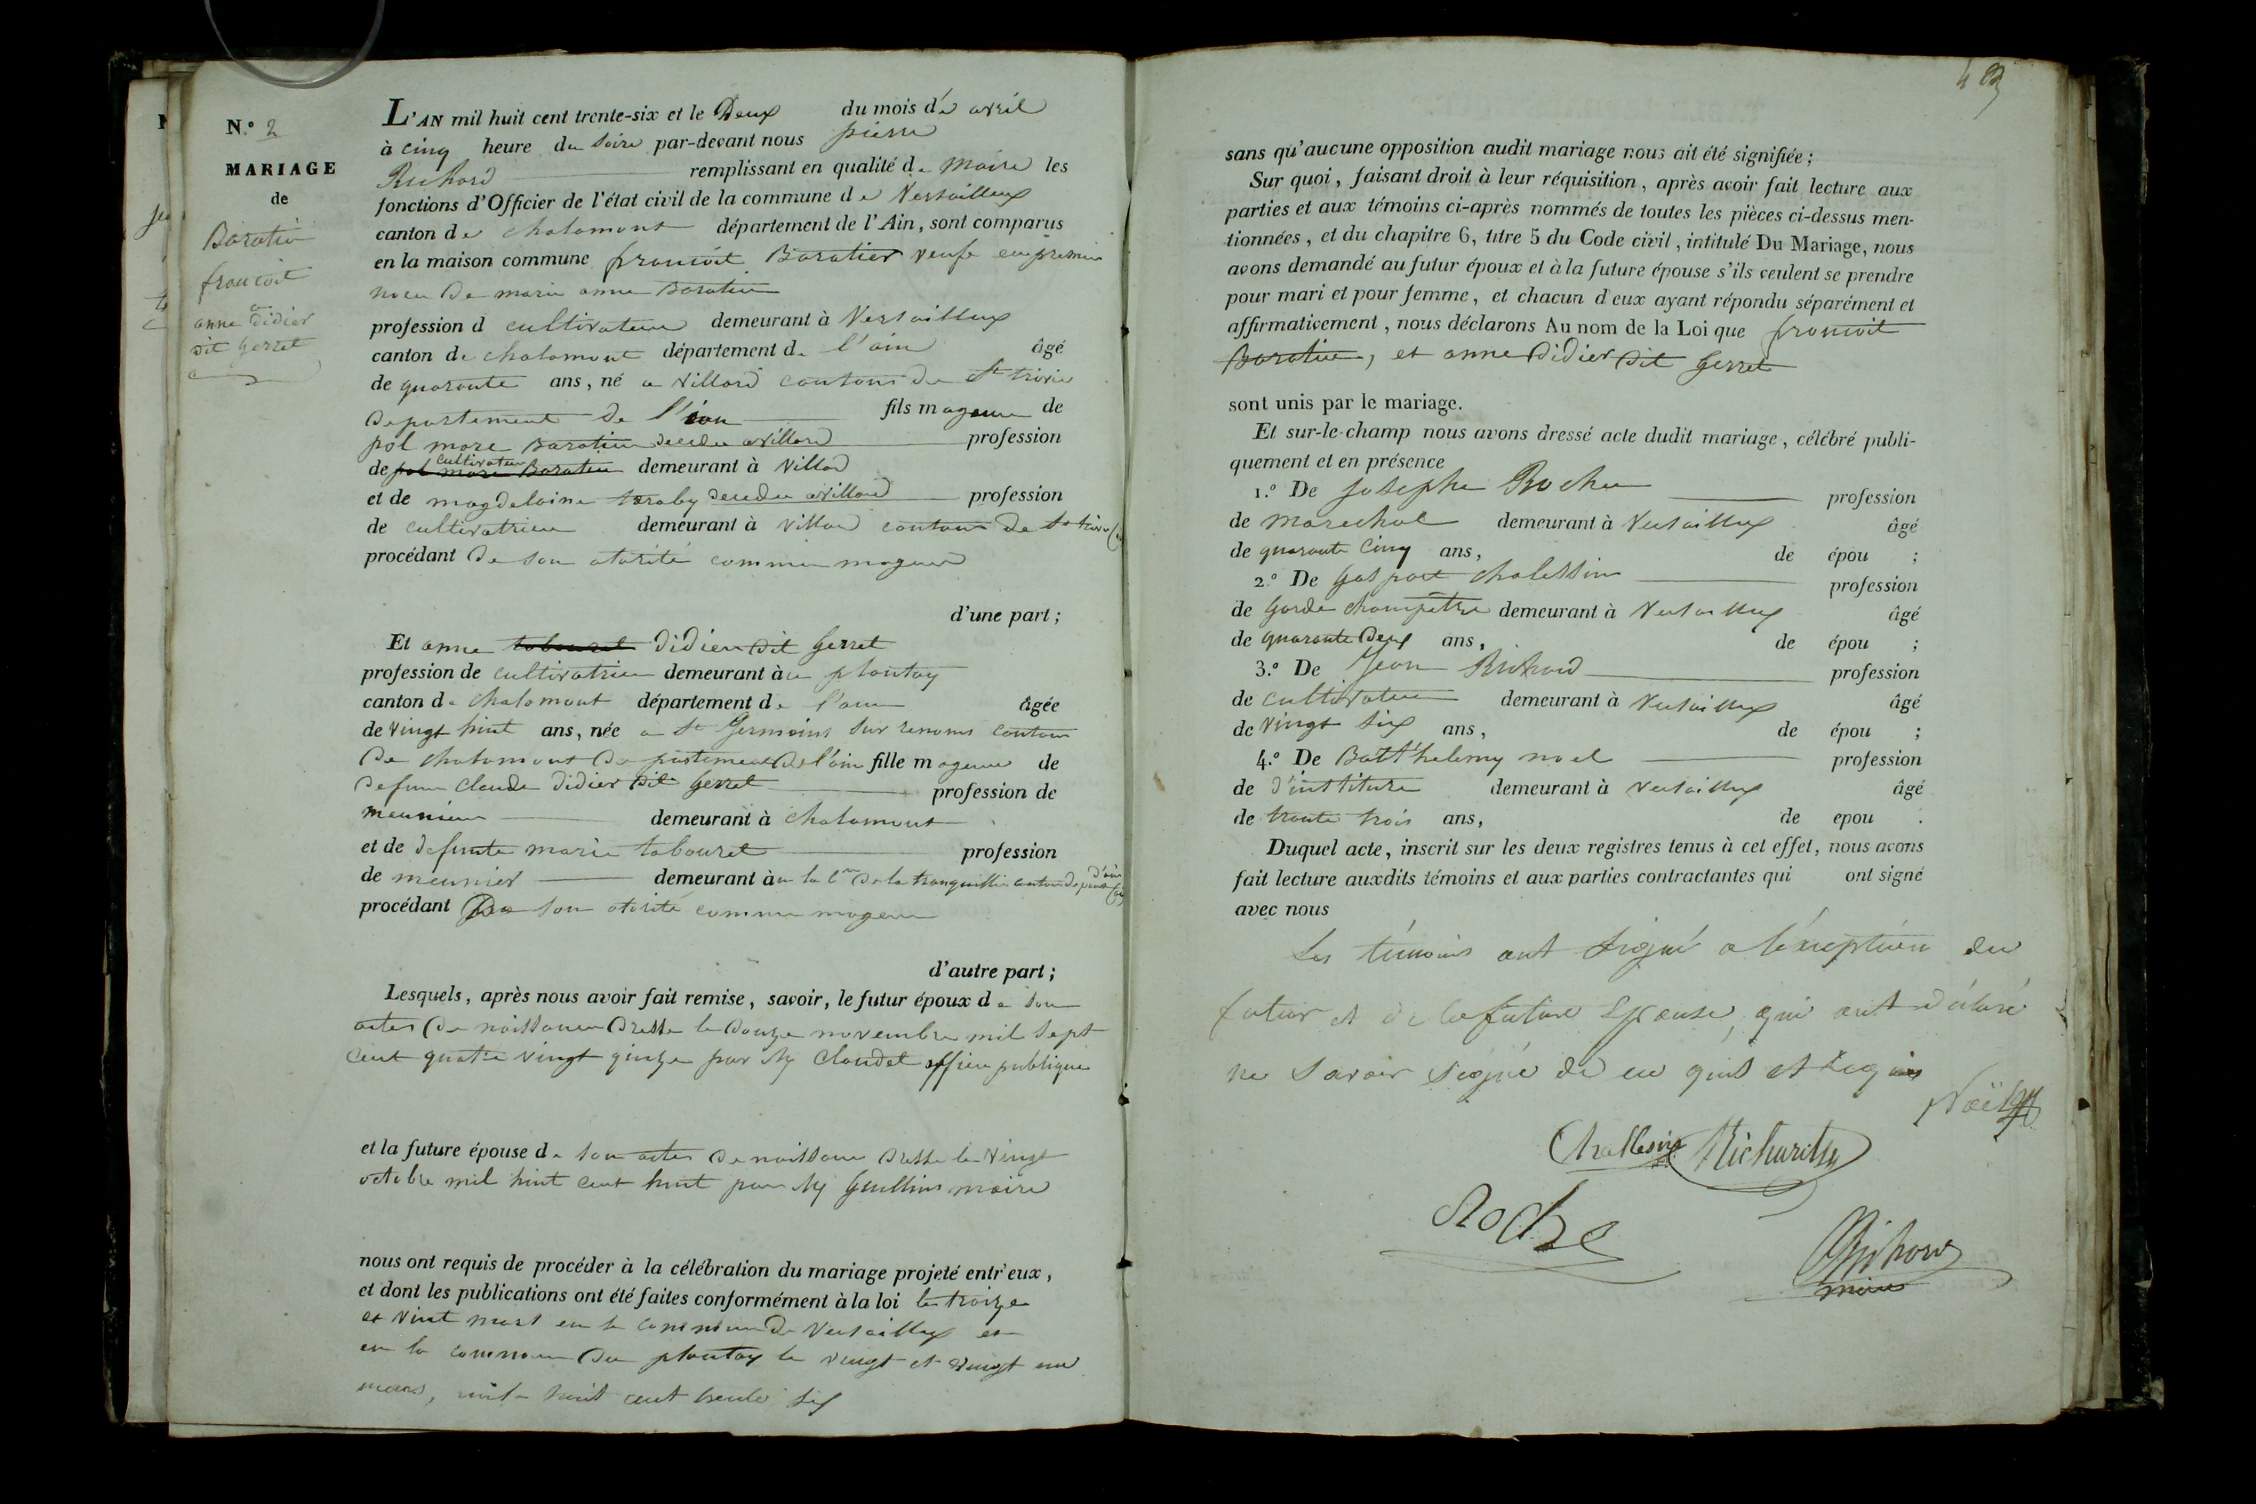 N.° 2
MARIAGE
de
Baratier
francoit
et
anne didier
dit gerret
L'AN mil huit cent trente-six et le Deux du mois d'e avril
à cinq heure du soire par-devant nous pierre
Richard remplissant en qualité de maire les
fonctions d'Officier de l'état civil de la commune de Versailleux
canton de chalamont département de l'Ain, sont comparus
en la maison commune francoit Baratier veufe en premier
noce de marie anne Baratier
profession d cultivateur demeurant à Versailleux
canton de chalamont département de l'ain âgé
de quarante ans, né a villard cantons de St trivier
departement de l'ain fils mageur de
pol marc Baratier decedu a villard profession
de cultivateur demeurant à villard
et de magdelaine taraby decedu a villard profession
de cultivatrice demeurant à villard cantons de St trivier
procédant de son otorité comme mageur
d'une part ;
Et anne tabouret didier dit gerret
profession de cultivatrice demeurant à u plantay
canton de chalamont département de l'ain âgée
de vingt huit ans, née a St Germains sur renoms canton
de chalamont departement de l'ain fille mageure de
defun claude didier dit gerret profession de
meunier demeurant à chalamont
et de defunte marie tabouret profession
de meunier demeurant à
procédant De son otorité comme mageure
d'autre part ;
Lesquels, après nous avoir fait remise, savoir, le futur époux de son
actes de naissance dresse le douze novembre mil sept
cent quatre vingt quinze par My claudel officier publique
et la future épouse de son actes de naissance dresse le vingt
octobre mil huit cent huit par My Guillins maire
nous ont requis de procéder à la célébration du mariage projeté entr'eux,
et dont les publications ont été faites conformément à la loi le treize
et vint mars en la commune de Versailleux et
en la commune du plantay le vingt et vingt
mars, mil huit cent trente six
sans qu'aucune opposition audit mariage nous ait été signifiée ;
Sur quoi, faisant droit à leur réquisition, après avoir fait lecture aux
parties et aux témoins ci-après nommés de toutes les pièces ci-dessus men-
tionnées, et du chapitre 6, titre 5 du Code civil, intitulé Du Mariage, nous
avons demandé au futur époux et à la future épouse s'ils veulent se prendre
pour mari et pour femme, et chacun d'eux ayant répondu séparément et
affirmativement, nous déclarons Au nom de la Loi que francoit
Baratier, et anne didier dit gerret
sont unis par le mariage.
Et sur-le-champ nous avons dressé acte dudit mariage, célébré publi-
quement et en présence
1.° De Josephe Roche profession
de marechal demeurant à Versailleux âgé
de quarante cinq ans, de épou ;
2.° De Gaspart chalessin profession
de Garde champêtre demeurant à Versailleux âgé
de quarante deux ans, de épou ;
3.° De Jean Richard profession
de cultivateur demeurant à Versailleux âgé
de vingt six ans, de épou ;
4.° De Batthelemy noel profession
de d'institure demeurant à Versailleux âgé
de trante trois ans, de epou .
Duquel acte, inscrit sur les deux registres tenus à cet effet, nous avons
fait lecture auxdits témoins et aux parties contractantes qui ont signé
avec nous
Les témoins ont signé a l'éxception du
futur et de la future Epouse, qui ont déclaré
ne savoir signé de ce
Noël
Challesin Richard
Roche
Richard
maire